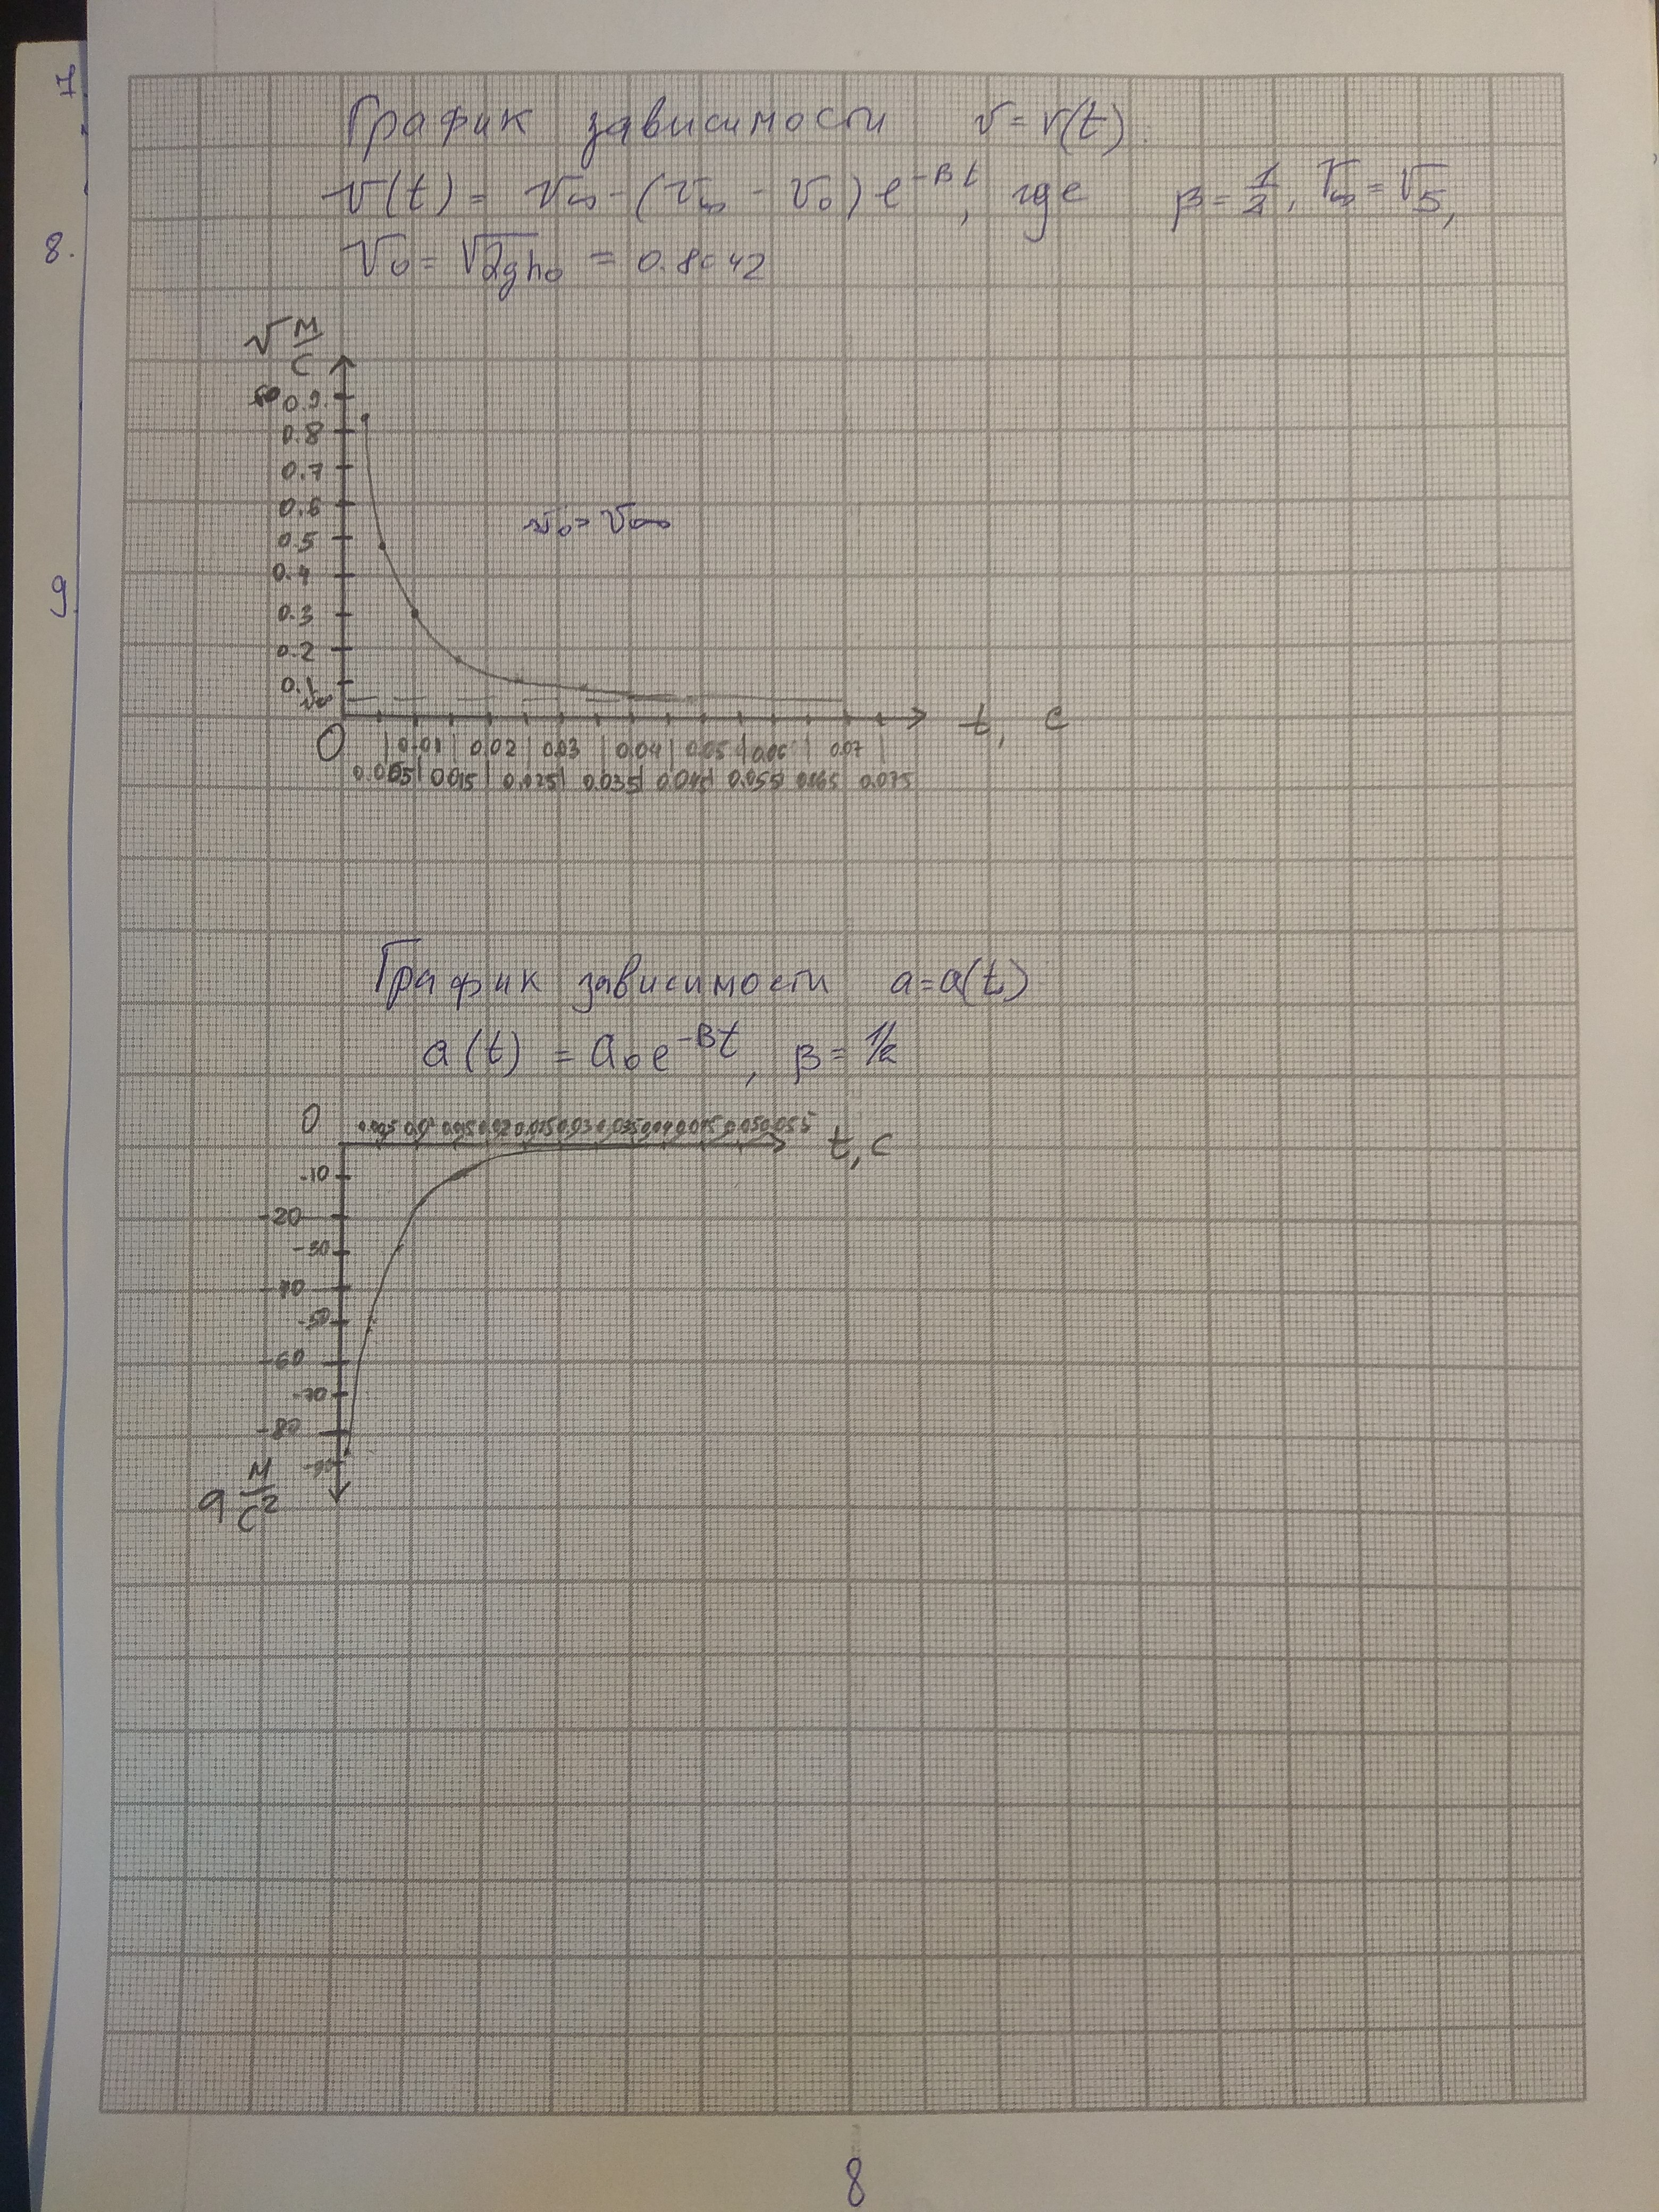 7
График зависимости v = v(t).
v(t) = v∞ - (v∞ - v₀) e^{-βt}, где β = 1/2, v∞ = v₅,
8.
v₀ = √2gh₀ = 0.8042
v м/с
0.9
0.8
0.7
0.6
v₀ > v∞
0.5
0.4
9
0.3
0.2
0.1
v∞
0 t, c
0.01 0.02 0.03 0.04 0.05 0.06 0.07
0.005 0.015 0.025 0.035 0.045 0.055 0.065 0.075
График зависимости a = a(t)
a(t) = a₀ e^{-βt}, β = 1/2
0 0.005 0.01 0.015 0.02 0.025 0.03 0.035 0.04 0.045 0.050 0.055
t, c
-10
-20
-30
-40
-50
-60
-70
-80
-90
a м/с²
8